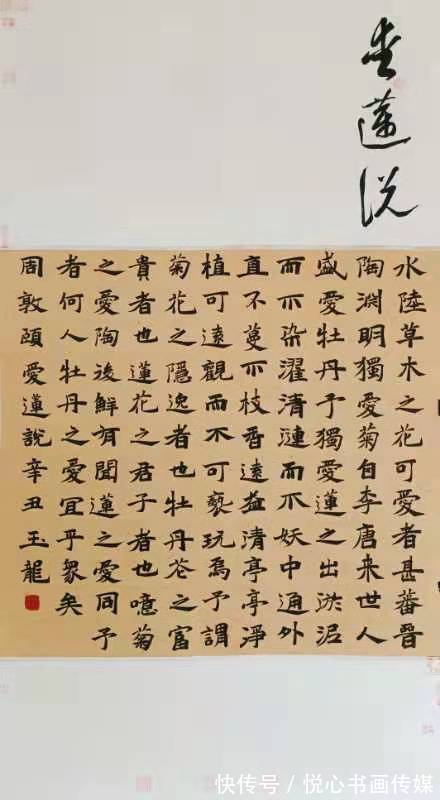 愛蓮説
水陸草木之花可愛者甚蕃晉
陶淵明獨愛菊自李唐来世人
盛愛牡丹予獨愛蓮之出淤泥
而不染濯清漣而不妖中通外
直不蔓不枝香遠益清亭亭淨
植可遠觀而不可褻玩焉予謂
菊花之隱逸者也牡丹花之富
貴者也蓮花之君子者也噫菊
之愛陶後鮮有聞蓮之愛同予
者何人牡丹之愛宜乎眾矣
周敦頤愛蓮說辛丑玉龍
快传号/悦心书画传媒